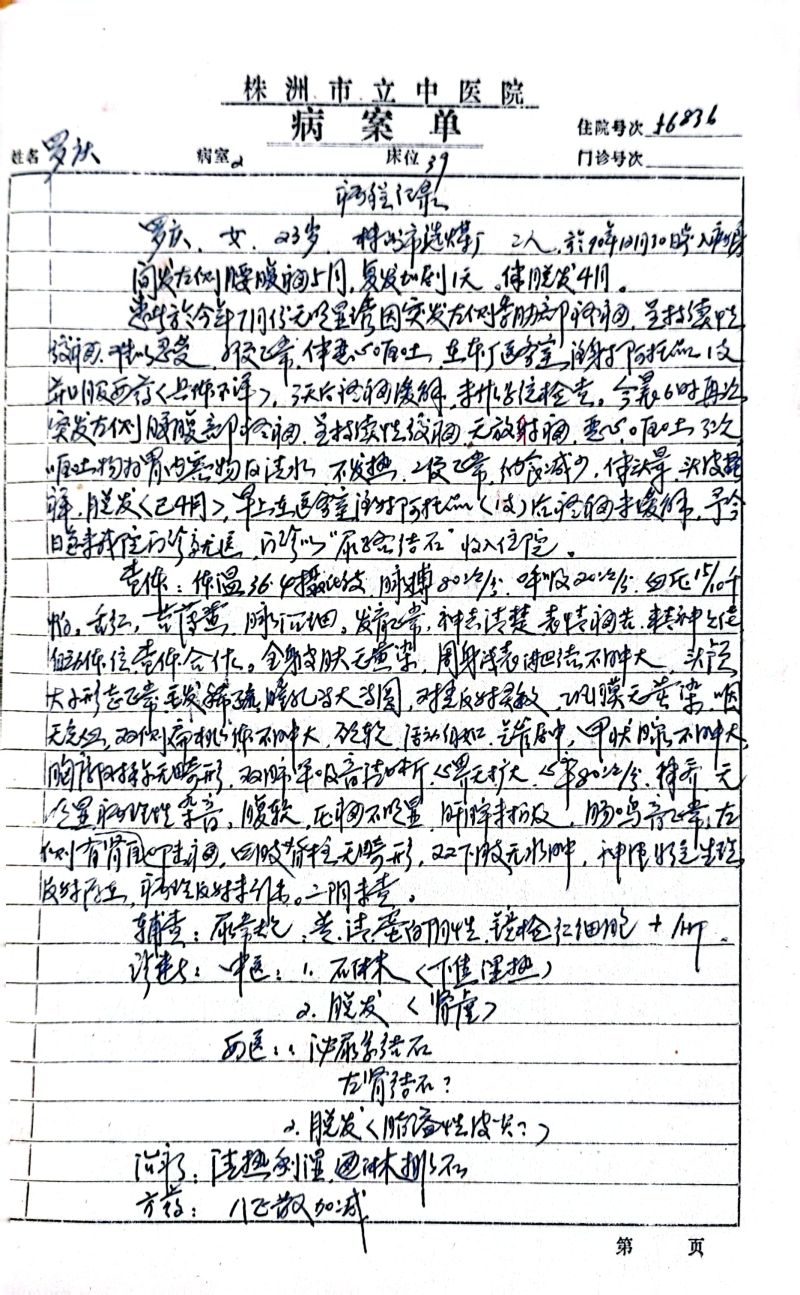 株洲市立中医院
病案单
住院号次 16836
姓名 罗庆 病室 2 床位 39 门诊号次
病程记录
罗庆、女、23岁、株洲市选煤厂工人，於90年12月30日入院
间发左侧腰腹痛5月，复发加剧1天。伴脱发4月。
患者於今年7月份无明显诱因突发左侧季肋部疼痛，呈持续性
绞痛，难以忍受，二便正常，伴恶心呕吐，在本厂医务室注射阿托品1支
并口服西药（具体不详），3天后疼痛缓解，未作任何检查。今晨6时再次
突发左侧腰腹部疼痛，呈持续性绞痛，无放射痛，恶心呕吐3次，
呕吐物为胃内容物及清水，不发热，二便正常，纳食减少，伴头晕，头皮瘙
痒，脱发（已4月），早上在医务室注射阿托品（1支）后疼痛未缓解，于今
日急来我院门诊就医，门诊以“尿路结石”收入住院。
查体：体温36.4摄氏度，脉搏80次/分，呼吸20次/分，血压15/10千
帕，舌红，苔薄黄，脉沉细。发育正常，神志清楚，表情痛苦，精神欠佳
自动体位，查体合作。全身皮肤无黄染，周身浅表淋巴结不肿大，头颅
大小形态正常，毛发稀疏，瞳孔等大等圆，对光反射灵敏，巩膜无黄染，咽
无充血，双侧扁桃体不肿大，颈软，活动自如，气管居中，甲状腺不肿大，
胸廓对称无畸形，双肺呼吸音清晰，心界无扩大，心率80次/分，律齐，无
明显病理性杂音，腹软，压痛不明显，肝脾未扪及，肠鸣音正常，左
侧肾区叩击痛，四肢脊柱无畸形，双下肢无水肿，神经系统生理
反射存在，病理反射未引出。二阴未查。
辅查：尿常规：黄、清、蛋白阴性，镜检红细胞 + /HP。
诊断：中医：1. 石淋（下焦湿热）
2. 脱发（肾虚）
西医：1. 泌尿系结石
左肾结石？
2. 脱发（脂溢性皮炎？）
治疗：清热利湿，通淋排石
方药：八正散加减
第 页